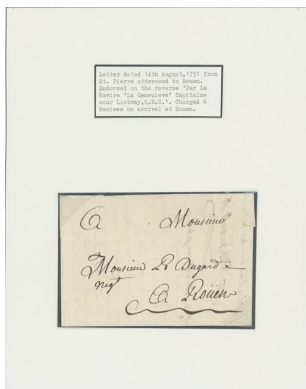 Letter dated 14th August,1751 from
St. Pierre addressed to Rouen.
Endorsed on the reverse 'Par le
Navire 'La Genevieve' Capitaine
sour Liebray,Q.D.C.'. Charged 6
decimes on arrival at Rouen.
A Monsieur
Monsieur R Dugard
Negt
A Roüen